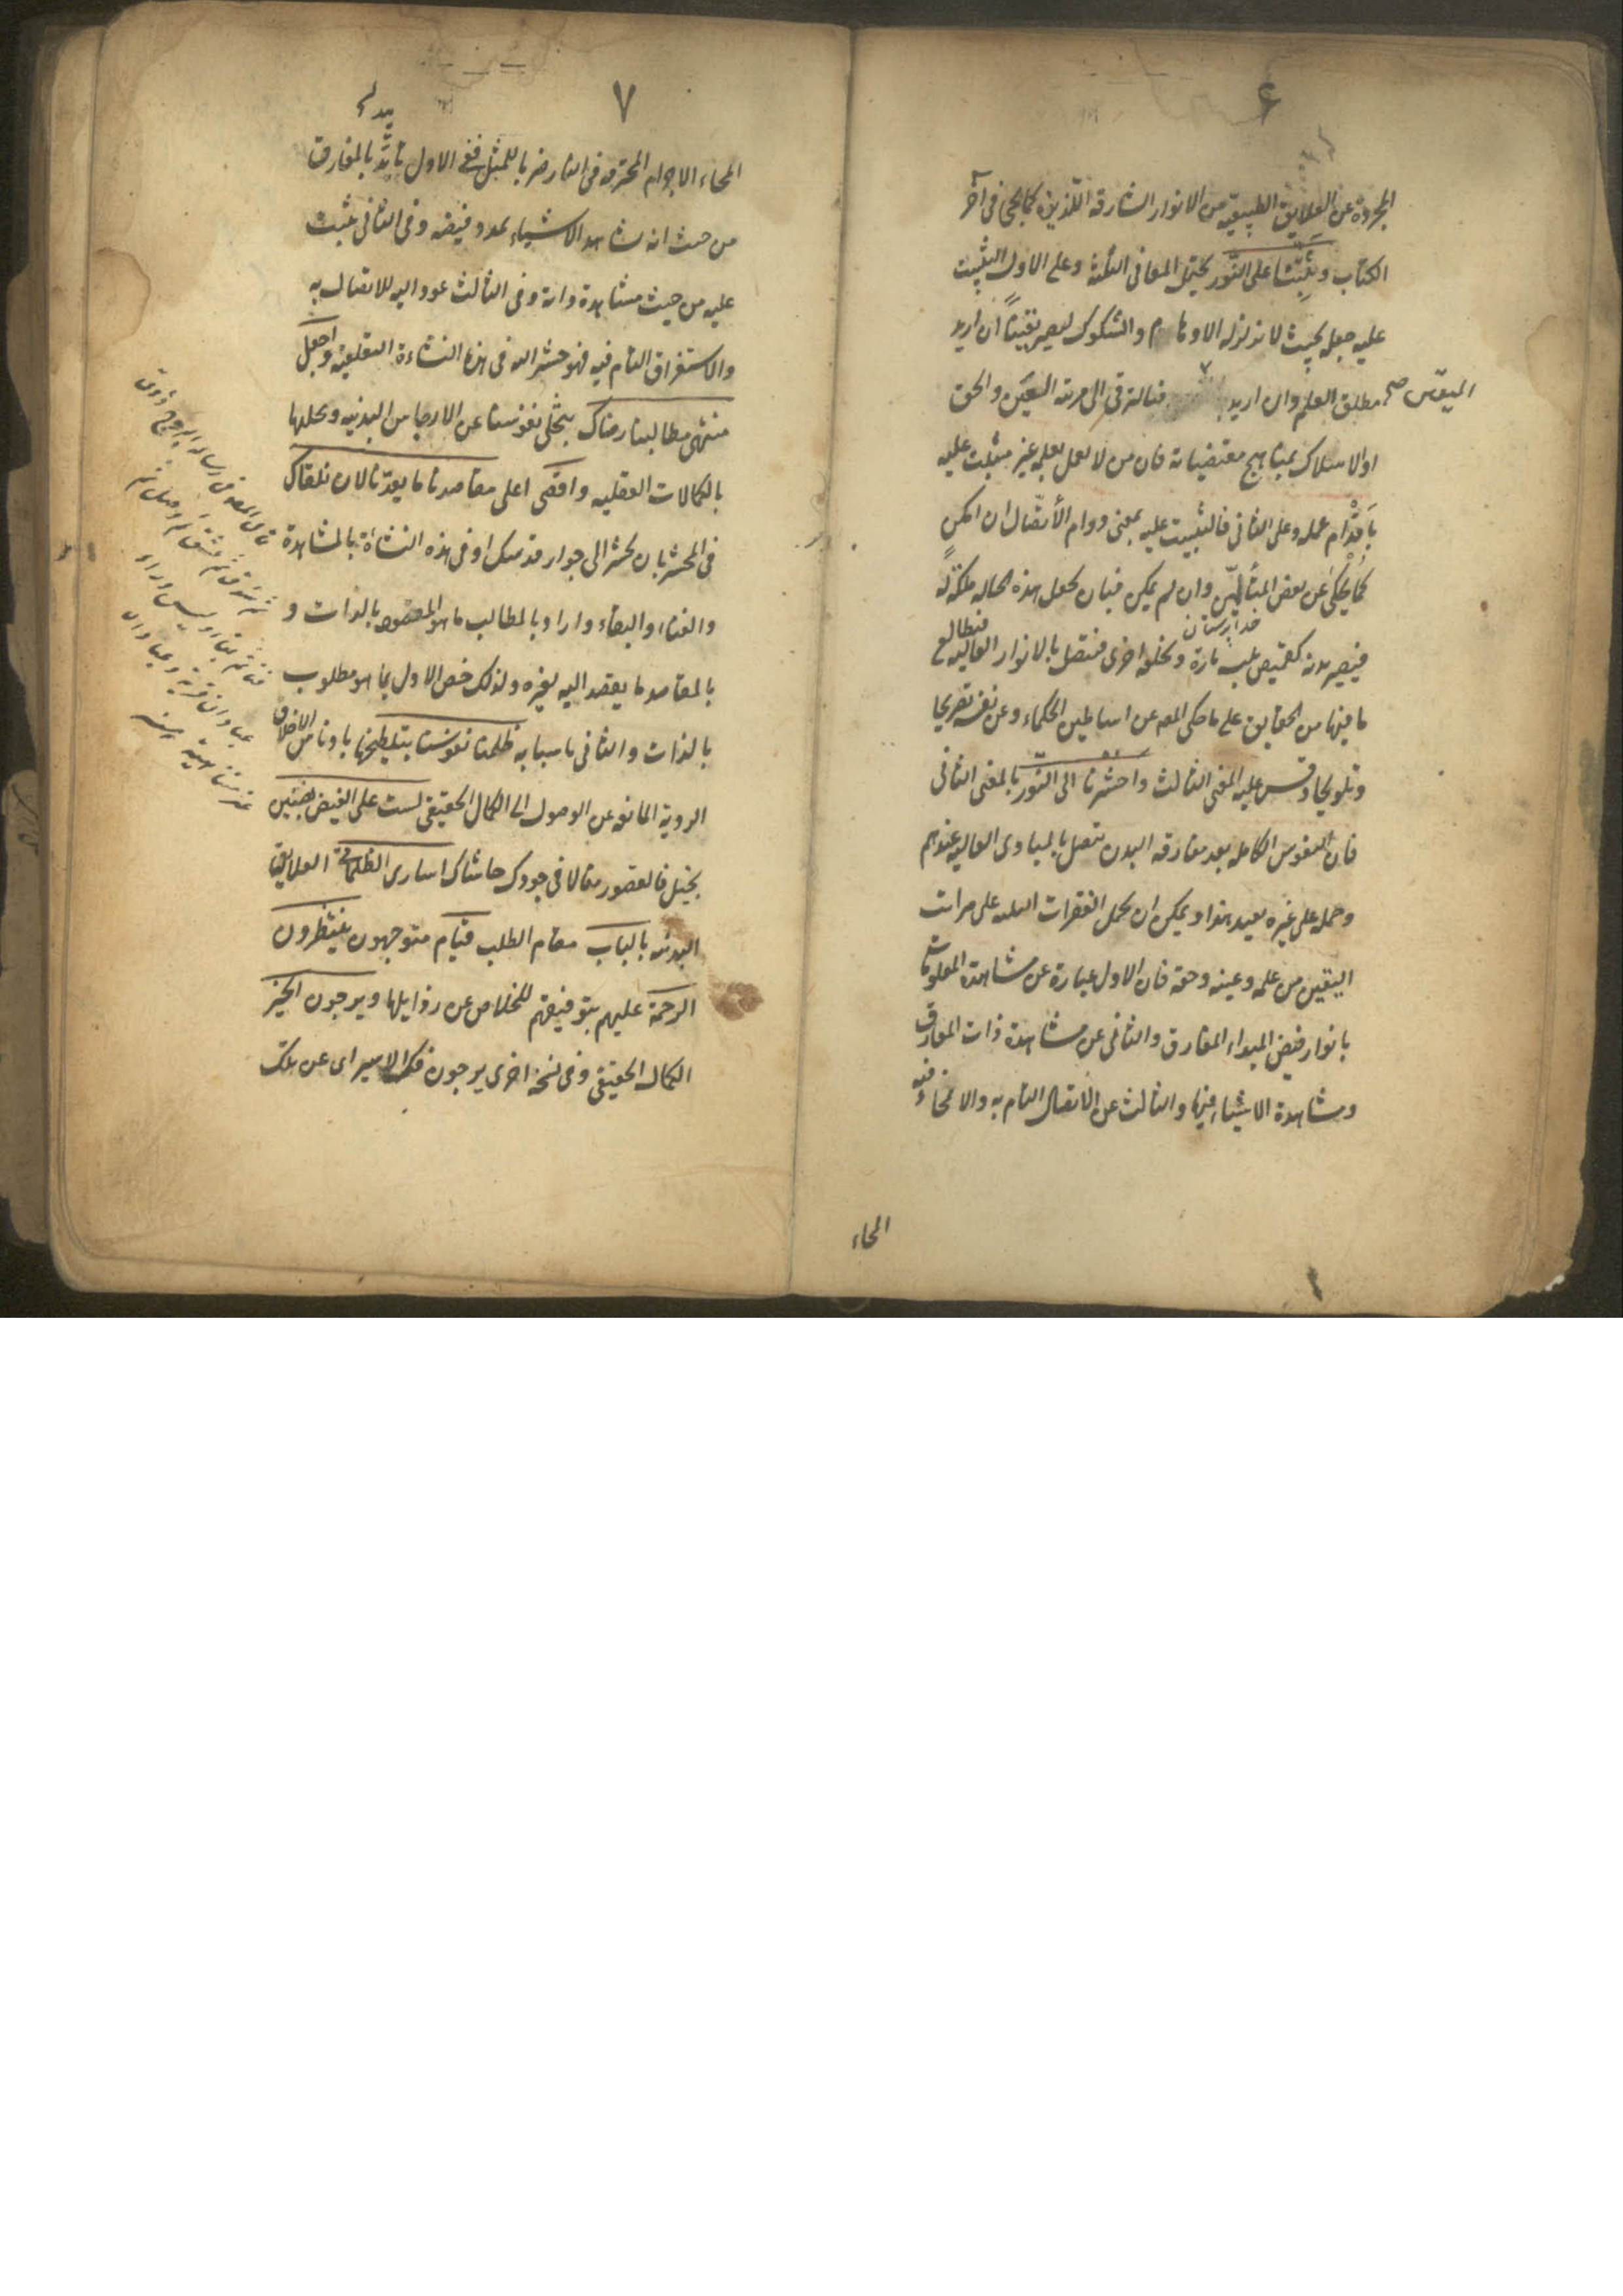 ٦
المجردة عن العلايق الطبيعيه من الانوار الشارقه اللذيذه كما يجئ في آخر
الكتاب وثبتنا على النور يحتمل المعاني الثلثة وعلى الاول التثبيت
عليه جعله بحيث لا تزلزله الاوهام والشكوك ليصير يقينًا ان اريد
مطلق العلم وان اريد فالترقي الى مرتبة العين والحق
اليقين صح
او الاسلاك بمناهج مقتضياته فان من لا يعمل بعلمه غير مثبت عليه
باقدام عمله وعلى الثاني فالتثبيت عليه بمعنى دوام الاتصال ان امكن
كما يحكى عن بعض المتألهين وان لم يمكن فبان يجعل هذه الحاله ملكة له
فيصير بدنه كقميص يلبسه تارة ويخلعه اخرى فيتصل بالانوار العاليه فيطالع
ما فيها من الحقايق على ما حكى المصـ عن اساطين الحكماء وعن نفسه تصريحا
وتلويحا وقس عليه المعنى الثالث واحشرنا الى النور بالمعنى الثاني
فان النفوس الكامله بعد مفارقه البدن تتصل بالمبادى العاليه عندهم
وحمله على غيره بعيد هذا ويمكن ان يحمل الفقرات الثلثة على مراتب
اليقين من علمه وعينه وحقه فان الاول عبارة عن مشاهدة المعلومات
بانوار فيض المبداء المفارق والثاني عن مشاهدة ذات المفارق
ومشاهدة الاشياء فيها والثالث عن الاتصال التام به والانمحاء فيه
المحاء
٧
المحاء الاجرام المحترقه في النار ضربا للمثل ففي الاول تأيد بالمفارق
من حيث انه شاهد الاشياء بمدد فيضه وفي الثاني يثبت
عليه من حيث مشاهدة ذاته وفي الثالث عود اليه للاتصال به
والاستغراق التام فيه فهو حشر اليه في هذه النشاءة التعلقيه واجعل
منتهى مطالبنا رضاك بتخلى نفوسنا عن الارجاس البدنيه وتحليها
بالكمالات العقليه واقصى اعلى مقاصدنا ما يعدنا لان نلقاك
في المحشر بان تحشر الى جوار قدسك او في هذه النشاة بالمشاهدة
والفناء والبقاء واراد بالمطالب ما هو المقصود بالذات و
بالمقاصد ما يقصد اليه لغيره ولذلك خص الاول بما هو مطلوب
بالذات والثاني باسبابه ظلمنا نفوسنا بتلطيخها بادناس الاخلاق
الرديه المانعه عن الوصول الى الكمال الحقيقي لست على الفيض بضنين
بخيل فالقصور منا لا في جودك حاشاك اسارى الظلمات العلايق
البدنيه بالباب مقام الطلب قيام متوجهون ينتظرون
الرحمة عليهم بتوفيقهم للخلاص عن رذايلها ويرجون الخير
الكمال الحقيقي وفي نسخة اخرى يرجون فك الاسير اى عن تلك